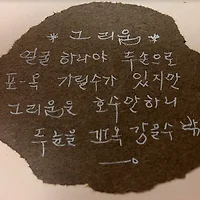 * 그리움 *
얼굴 하나야 두손으로
포-옥 가릴수가 있지만
그리움은 호수만하니
두눈을 꼬옥 감을수 밖